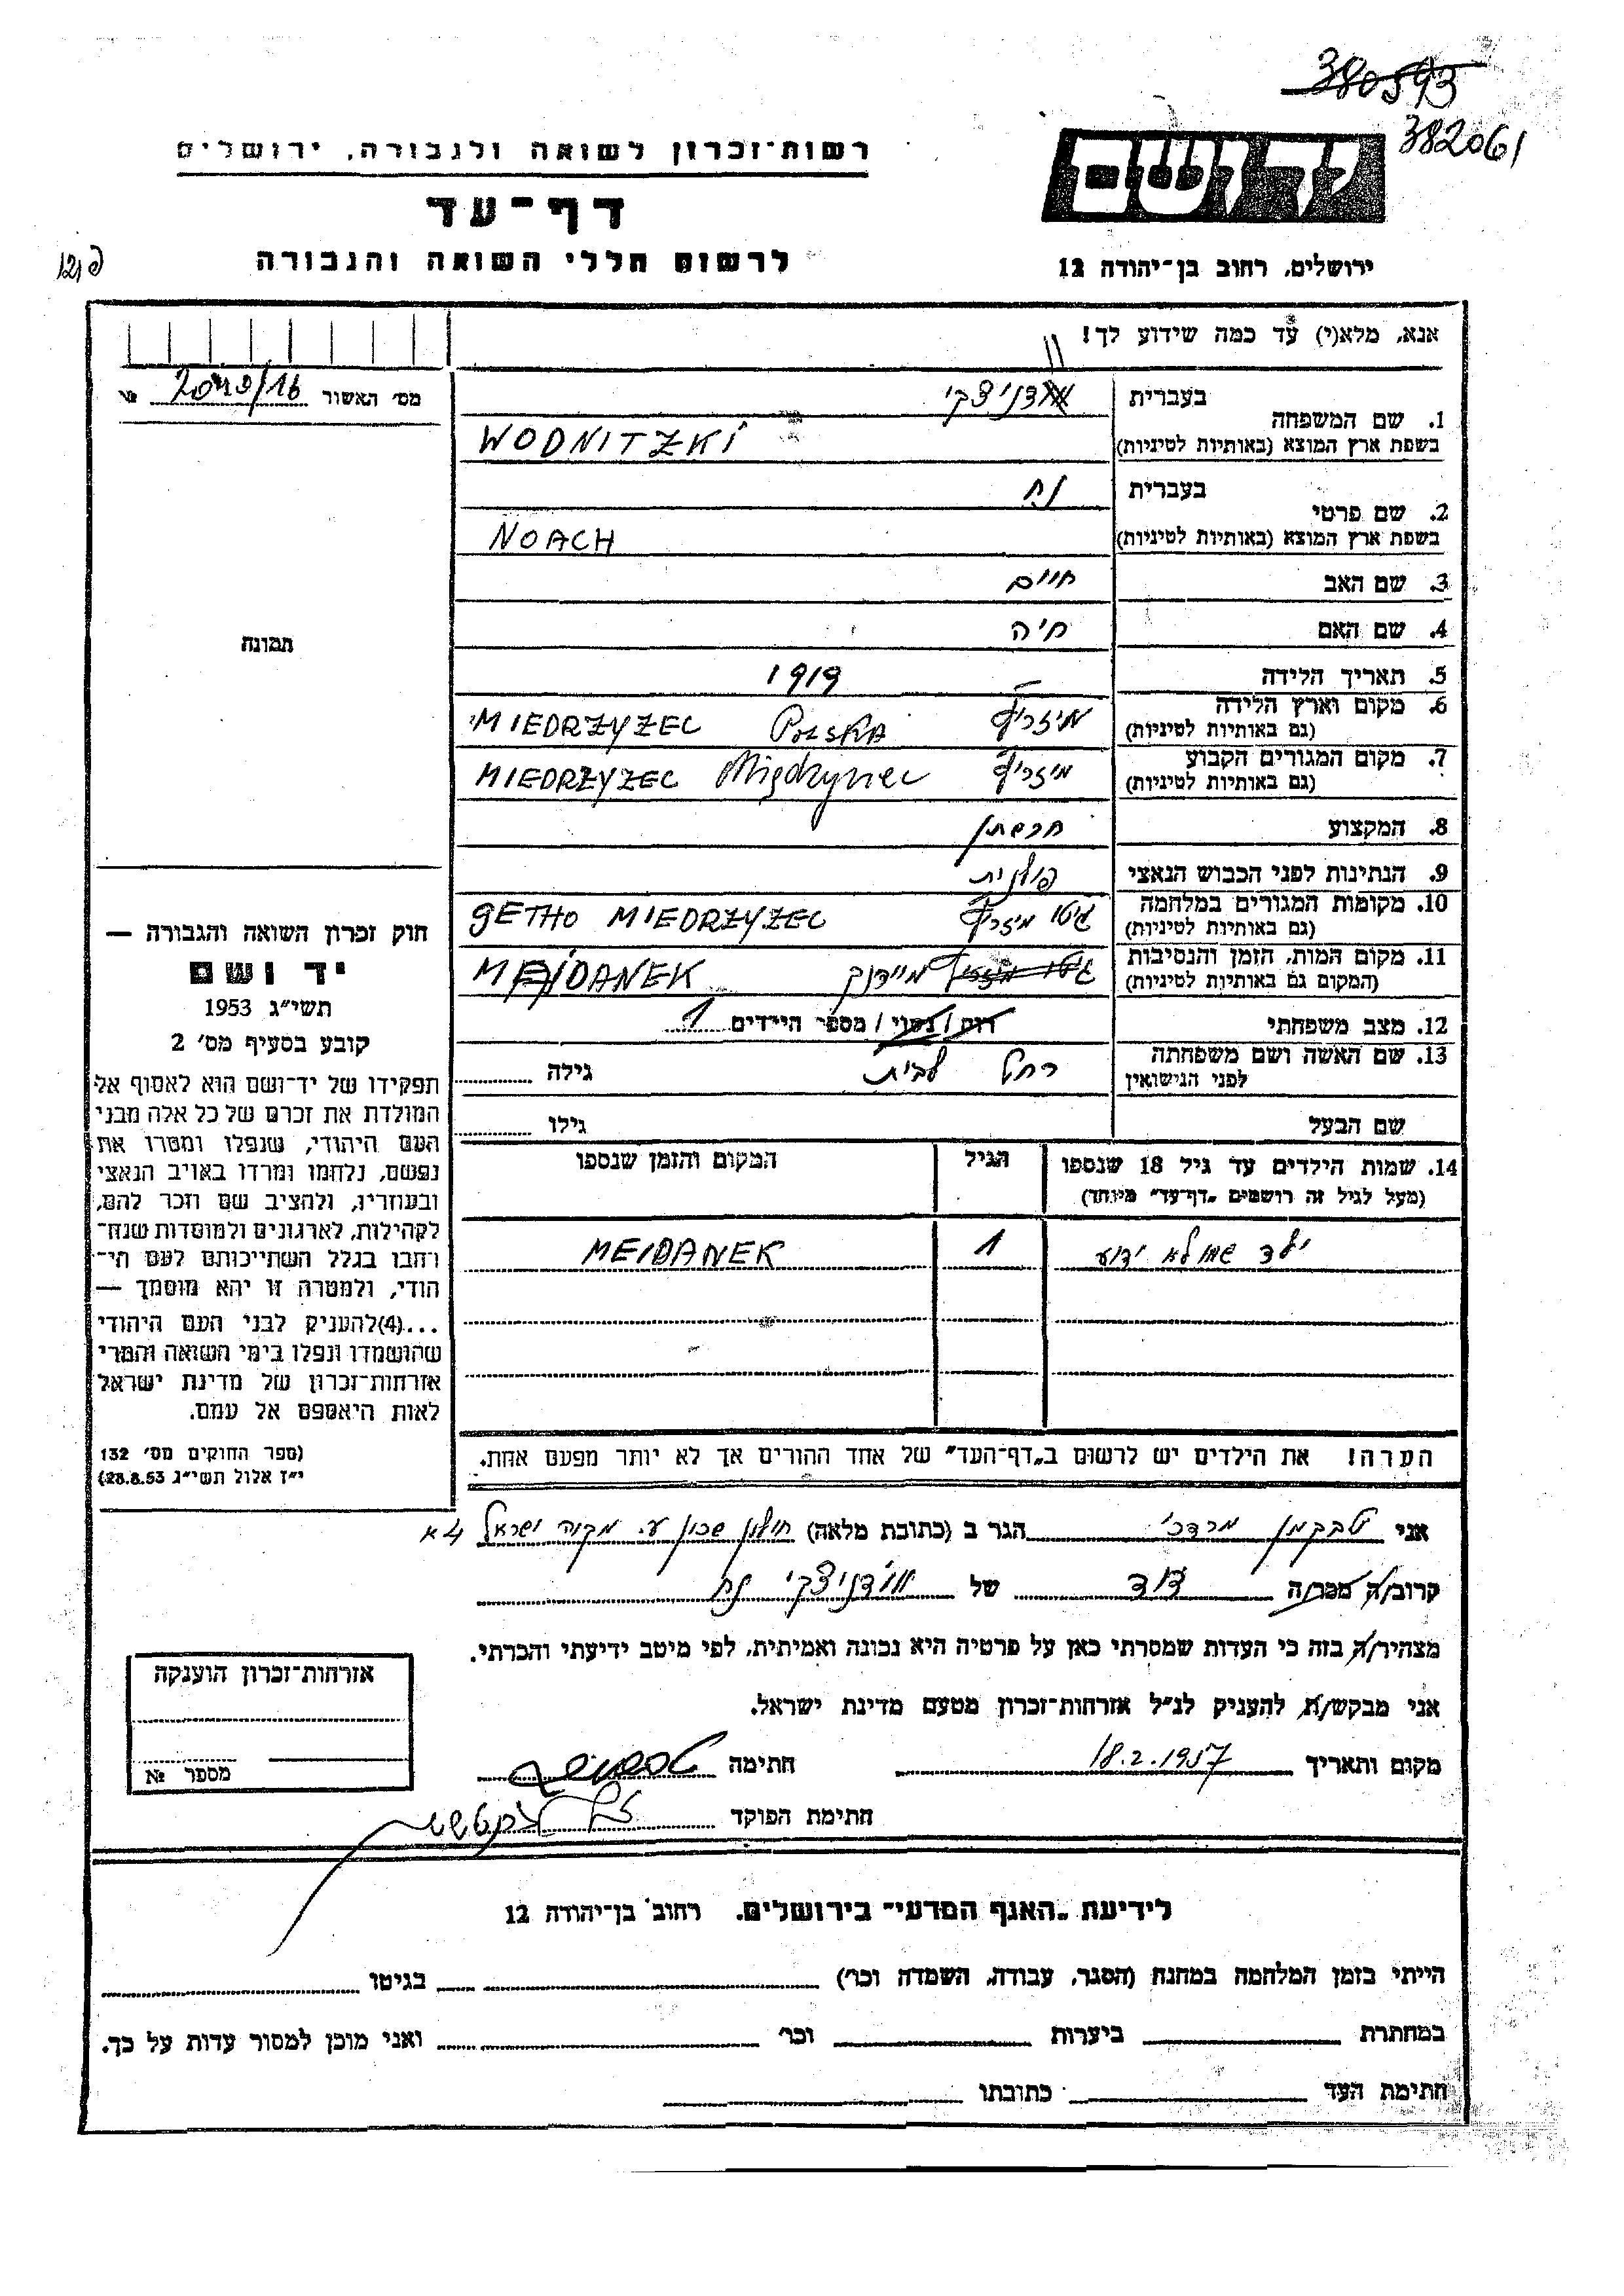 380593
382061
רשות־זכרון לשואה ולגבורה, ירושלים
יד ושם
דף־עד
לרשום חללי השואה והגבורה
ירושלים, רחוב בן־יהודה 12
אנא, מלא(י) עד כמה שידוע לך!
מס׳ האשור №
1. שם המשפחה
בעברית וודניצקי
בשפת ארץ המוצא (באותיות לטיניות) WODNITZKI
2. שם פרטי
בעברית נח
בשפת ארץ המוצא (באותיות לטיניות) NOACH
3. שם האב חיים
4. שם האם חיה
תמונה
5. תאריך הלידה 1919
6. מקום וארץ הלידה
(גם באותיות לטיניות) מיזריץ POLSKA MIEDRZYZEC
7. מקום המגורים הקבוע
(גם באותיות לטיניות) מיזריץ MIEDRZYZEC
8. המקצוע חרשתן
9. הנתינות לפני הכבוש הנאצי פולנית
10. מקומות המגורים במלחמה
(גם באותיות לטיניות) גיטו מיזריץ GETHO MIEDRZYZEC
11. מקום המות, הזמן והנסיבות
(המקום גם באותיות לטיניות) גיטו מיזריץ מיידנק MEIDANEK
12. מצב משפחתי רוק / נשוי / מספר הילדים 1
13. שם האשה ושם משפחתה
לפני הנישואין רחל לבית גילה
שם הבעל גילו
14. שמות הילדים עד גיל 18 שנספו
(מעל לגיל זה רושמים „דף־עד” מיוחד)
הגיל
המקום והזמן שנספו
ילד שמו לא ידוע 1 MEIDANEK
הערה! את הילדים יש לרשום ב„דף־העד” של אחד ההורים אך לא יותר מפעם אחת.
חוק זכרון השואה והגבורה —
יד ושם
תשי״ג 1953
קובע בסעיף מס׳ 2
תפקידו של יד־ושם הוא לאסוף אל
המולדת את זכרם של כל אלה מבני
העם היהודי, שנפלו ומסרו את
נפשם, נלחמו ומרדו באויב הנאצי
ובעוזריו, ולהציב שם וזכר להם,
לקהילות, לארגונים ולמוסדות שנח־
רחבו בגלל השתייכותם לעם הי־
הודי, ולמטרה זו יהא מוסמך —
...(4)להעניק לבני העם היהודי
שהושמדו ונפלו בימי השואה והמרי
אזרחות־זכרון של מדינת ישראל
לאות היאספם אל עמם.
(ספר החוקים מס׳ 132
י״ז אלול תשי״ג 28.8.53)
אני טבקמן מרדכי הגר ב (כתובת מלאה) חולון שכון ע. מקוה ישראל 4א
קרוב/ה מכר/ה דוד של וודניצקי נח
מצהיר/ה בזה כי העדות שמסרתי כאן על פרטיה היא נכונה ואמיתית, לפי מיטב ידיעתי והכרתי.
אני מבקש/ת להעניק לנ״ל אזרחות־זכרון מטעם מדינת ישראל.
מקום ותאריך 18.2.1957 חתימה
חתימת הפוקד
אזרחות־זכרון הוענקה
מספר №
לידיעת „האגף המדעי” בירושלים. רחוב בן־יהודה 12
הייתי בזמן המלחמה במחנה (הסגר, עבודה, השמדה וכר׳) בגיטו
במחתרת ביערות וכר׳ ואני מוכן למסור עדות על כך.
חתימת העד כתובתו